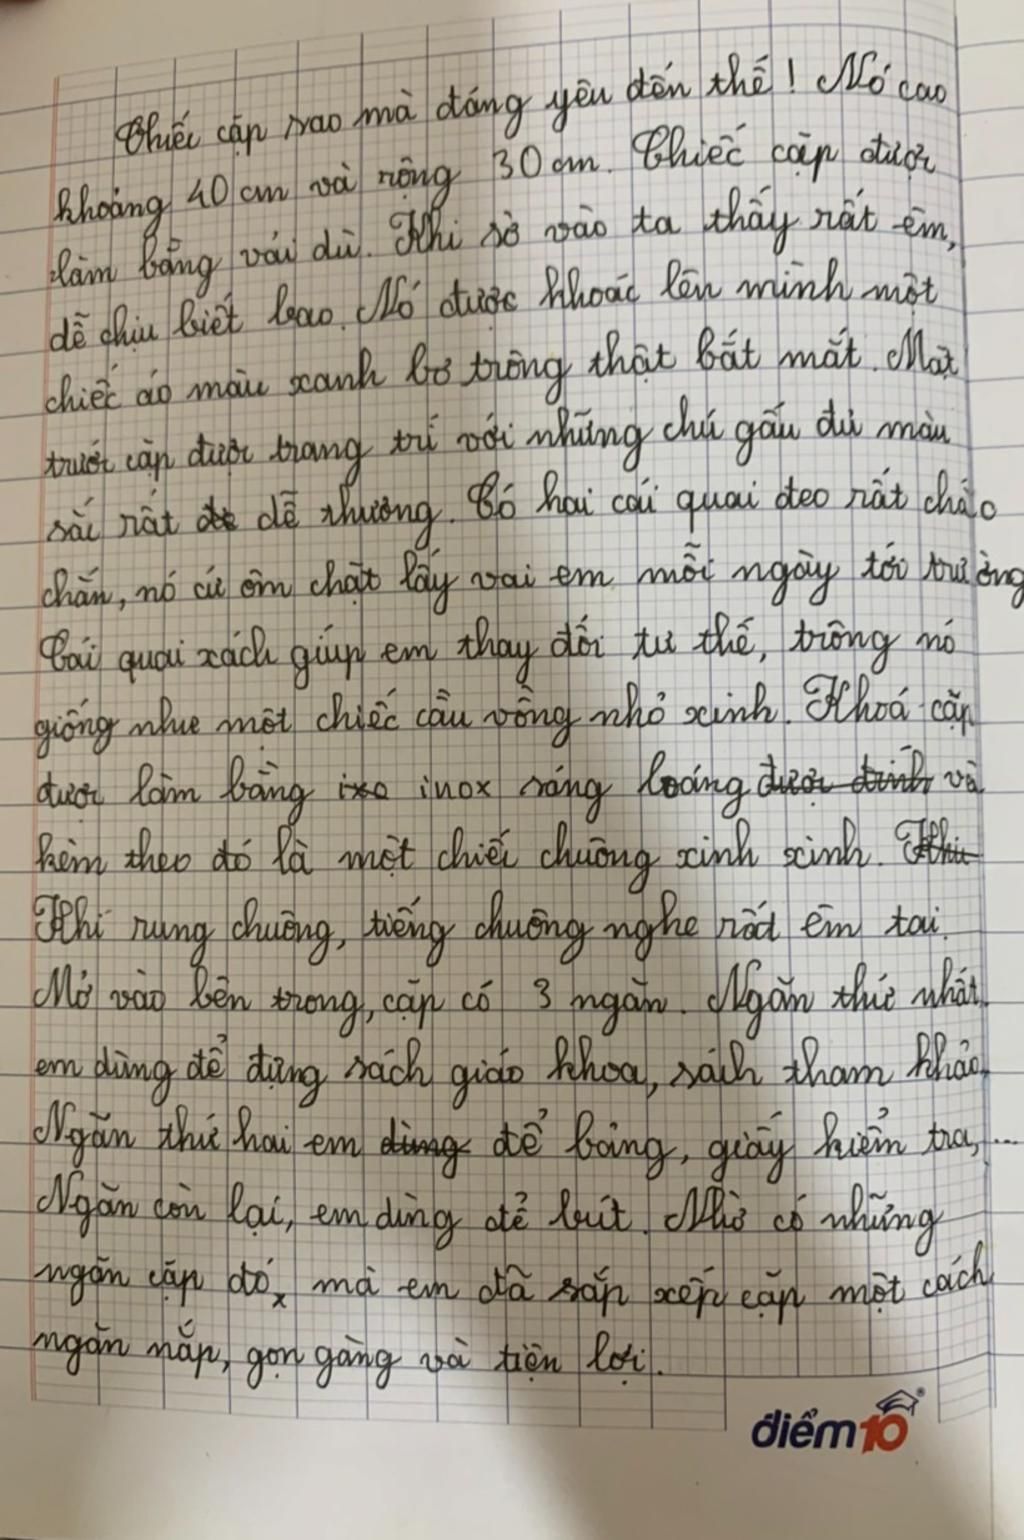 Chiếc cặp sao mà đáng yêu đến thế! Nó cao
khoảng 40 cm và rộng 30 cm. Chiếc cặp được
làm bằng vải dù. Khi sờ vào ta thấy rất êm,
dễ chịu biết bao. Nó được khoác lên mình một
chiếc áo màu xanh bơ trông thật bắt mắt. Mặt
trước cặp được trang trí với những chú gấu đủ màu
sắc rất dễ thương. Có hai cái quai đeo rất chắc
chắn, nó cứ ôm chặt lấy vai em mỗi ngày tới trường
Cái quai xách giúp em thay đổi tư thế, trông nó
giống như một chiếc cầu vồng nhỏ xinh. Khoá cặp
được làm bằng ixo inox sáng loáng được đính và
kèm theo đó là một chiếc chuông xinh xinh. Khi
Khi rung chuông, tiếng chuông nghe rất êm tai.
Mở vào bên trong, cặp có 3 ngăn. Ngăn thứ nhất
em dùng để đựng sách giáo khoa, sách tham khảo.
Ngăn thứ hai em dùng để bảng, giấy kiểm tra,...
Ngăn còn lại, em dùng để bút. Nhờ có những
ngăn cặp đó, mà em đã sắp xếp cặp một cách
ngăn nắp, gọn gàng và tiện lợi.
điểm10